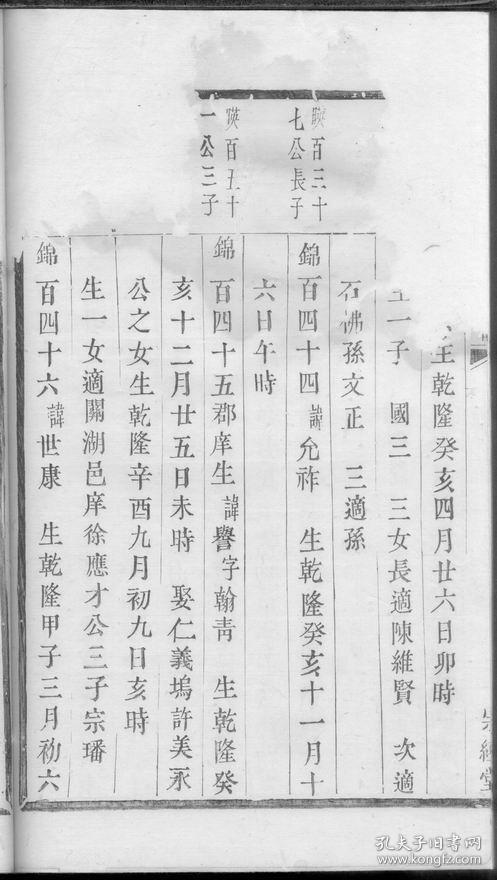 生乾隆癸亥四月廿六日卯時
一子 國三 三女長適陳維賢 次適
石佛孫文正 三適孫
暎百三十
七公長子
錦百四十四諱允祚 生乾隆癸亥十一月十
六日午時
暎百五十
一公三子
錦百四十五郡庠生諱譽字翰青 生乾隆癸
亥十二月廿五日未時 娶仁義塢許美永
公之女生乾隆辛酉九月初九日亥時
生一女適關湖邑庠徐應才公三子宗璠
錦百四十六諱世康 生乾隆甲子三月初六
孔夫子旧书网
www.kongfz.com